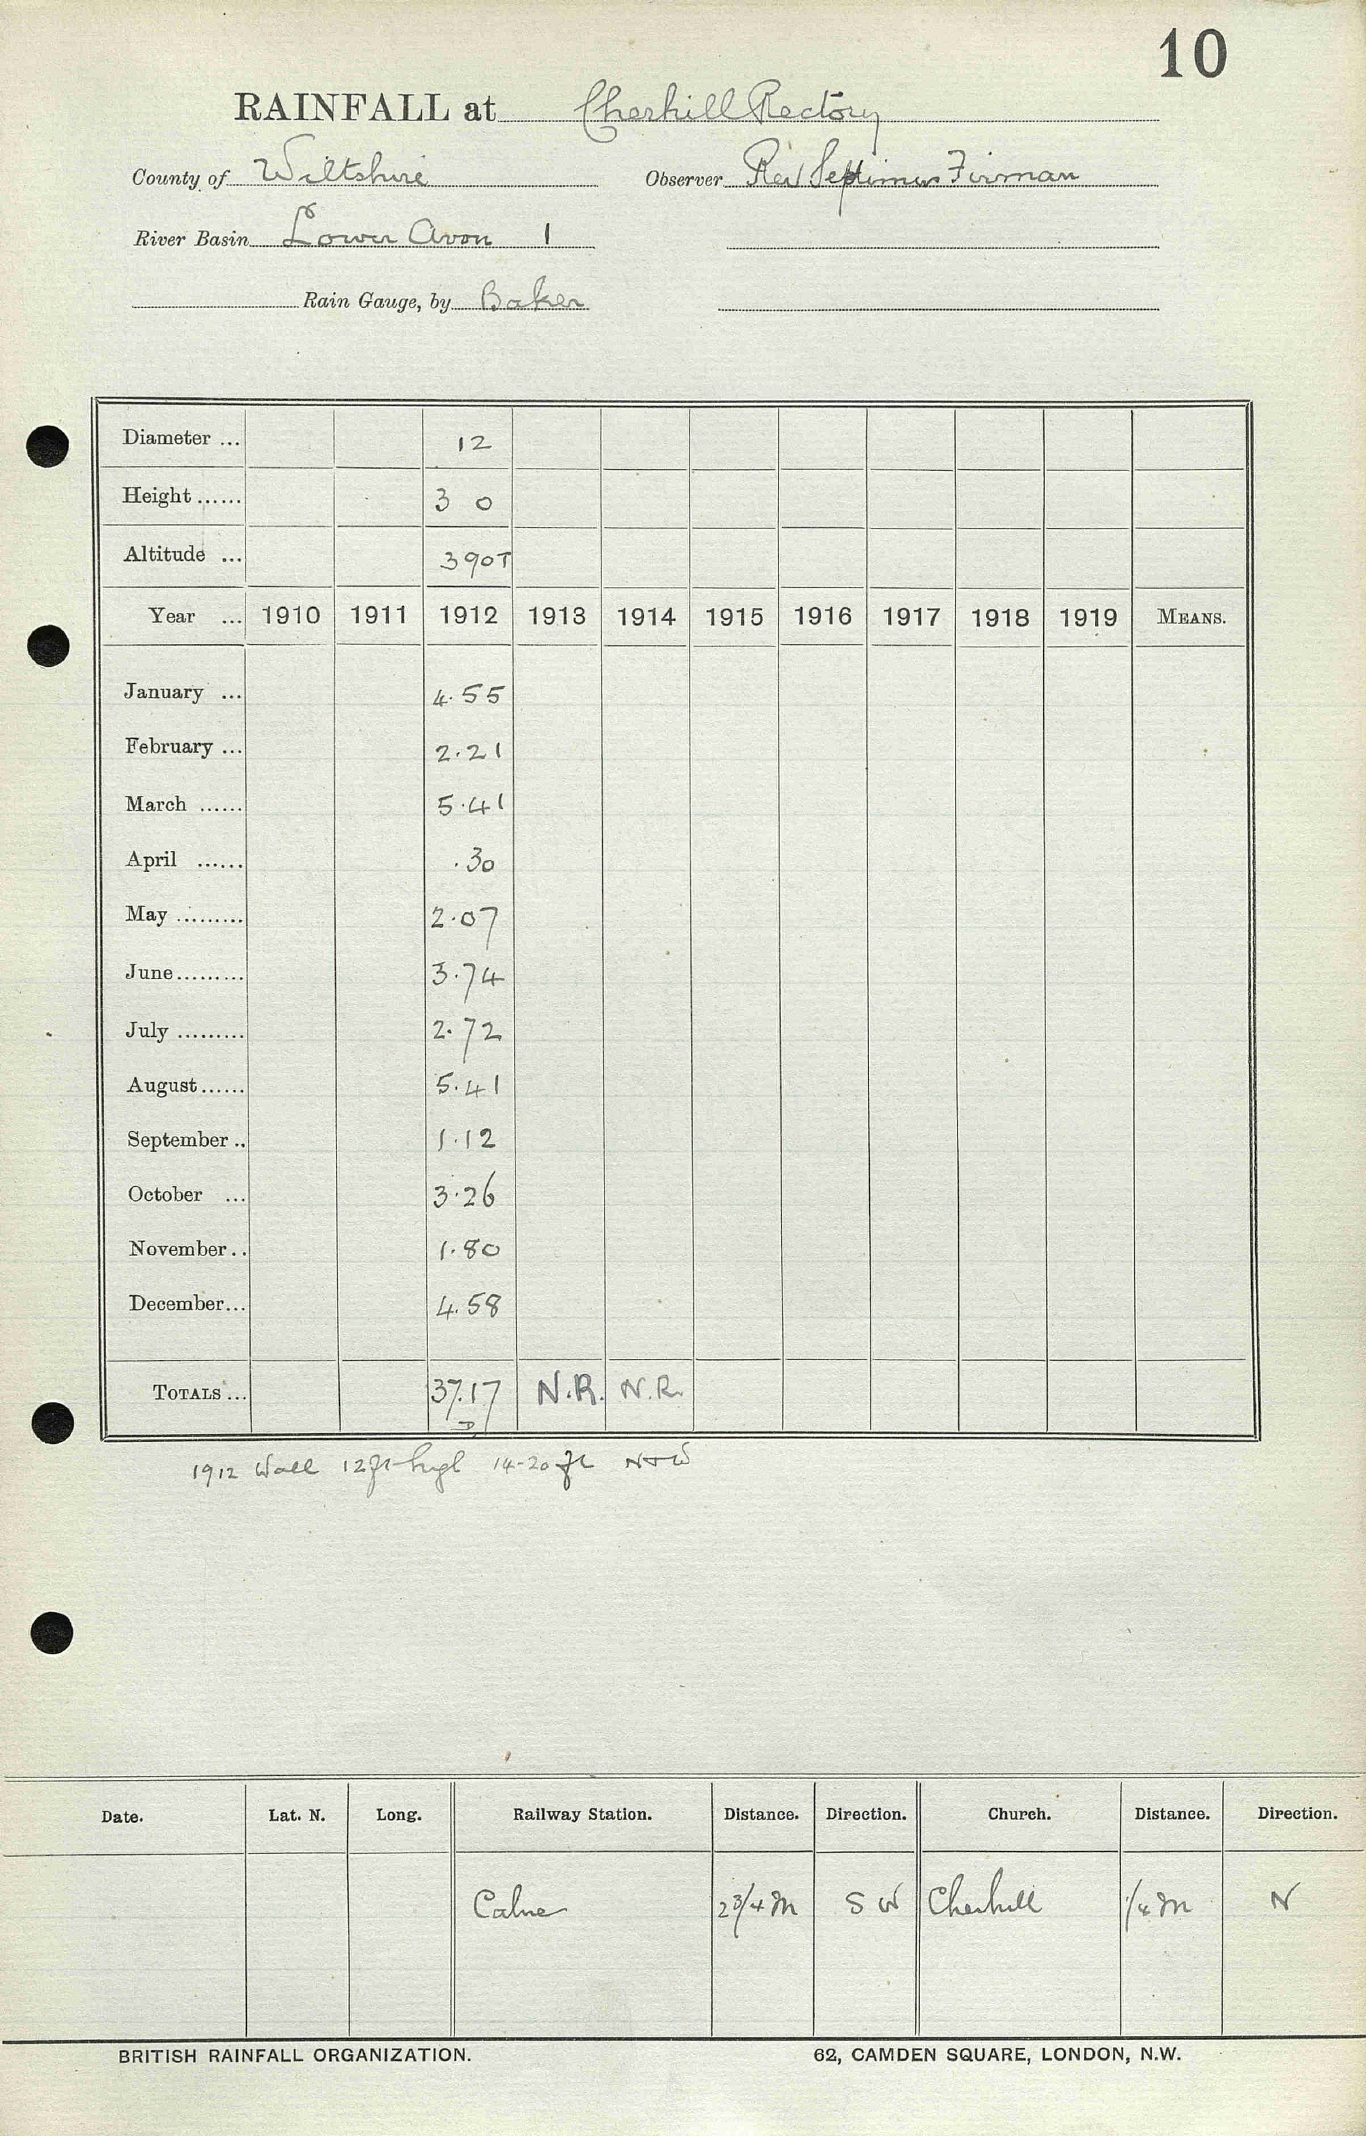 10
RAINFALL at Cherhill Rectory
County of Wiltshire Observer Rev Septimus Firman
River Basin Lower Avon 1
Rain Gauge, by Baker
Diameter ... 12
Height ...... 3 0
Altitude ... 390T
Year ... 1910 1911 1912 1913 1914 1915 1916 1917 1918 1919 MEANS.
January ... 4.55
February ... 2.21
March ...... 5.41
April ...... .30
May ......... 2.07
June ......... 3.74
July ......... 2.72
August ...... 5.41
September .. 1.12
October ... 3.26
November .. 1.80
December ... 4.58
TOTALS ... 37.17 N.R. N.R.
D
1912 Wall 12 ft high 14-20 ft N + W
Date. Lat. N. Long. Railway Station. Distance. Direction. Church. Distance. Direction.
Calne 2 3/4 M S W Cherhill 1/4 M N
BRITISH RAINFALL ORGANIZATION. 62, CAMDEN SQUARE, LONDON, N.W.